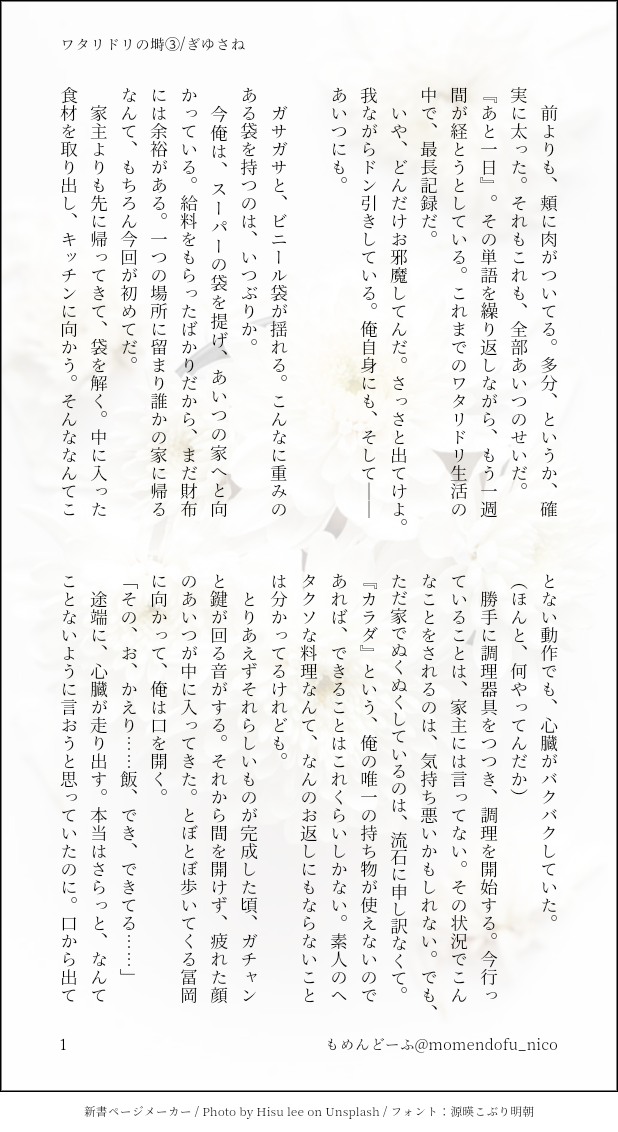 ワタリドリの塒③/ぎゆさね
　前よりも、頬に肉がついてる。多分、というか、確
実に太った。それもこれも、全部あいつのせいだ。
『あと一日』。その単語を繰り返しながら、もう一週
間が経とうとしている。これまでのワタリドリ生活の
中で、最長記録だ。
　いや、どんだけお邪魔してんだ。さっさと出てけよ。
我ながらドン引きしている。俺自身にも、そして――
あいつにも。
　ガサガサと、ビニール袋が揺れる。こんなに重みの
ある袋を持つのは、いつぶりか。
　今俺は、スーパーの袋を提げ、あいつの家へと向
かっている。給料をもらったばかりだから、まだ財布
には余裕がある。一つの場所に留まり誰かの家に帰る
なんて、もちろん今回が初めてだ。
　家主よりも先に帰ってきて、袋を解く。中に入った
食材を取り出し、キッチンに向かう。そんななんてこ
とない動作でも、心臓がバクバクしていた。
（ほんと、何やってんだか）
　勝手に調理器具をつつき、調理を開始する。今行っ
ていることは、家主には言ってない。その状況でこん
なことをされるのは、気持ち悪いかもしれない。でも、
ただ家でぬくぬくしているのは、流石に申し訳なくて。
『カラダ』という、俺の唯一の持ち物が使えないので
あれば、できることはこれくらいしかない。素人のヘ
タクソな料理なんて、なんのお返しにもならないこと
は分かってるけれども。
　とりあえずそれらしいものが完成した頃、ガチャン
と鍵が回る音がする。それから間を開けず、疲れた顔
のあいつが中に入ってきた。とぼとぼ歩いてくる冨岡
に向かって、俺は口を開く。
「その、お、かえり……飯、でき、できてる……」
　途端に、心臓が走り出す。本当はさらっと、なんて
ことないように言おうと思っていたのに。口から出て
1
もめんどーふ@momendofu_nico
新書ページメーカー / Photo by Hisu lee on Unsplash / フォント：源暎こぶり明朝